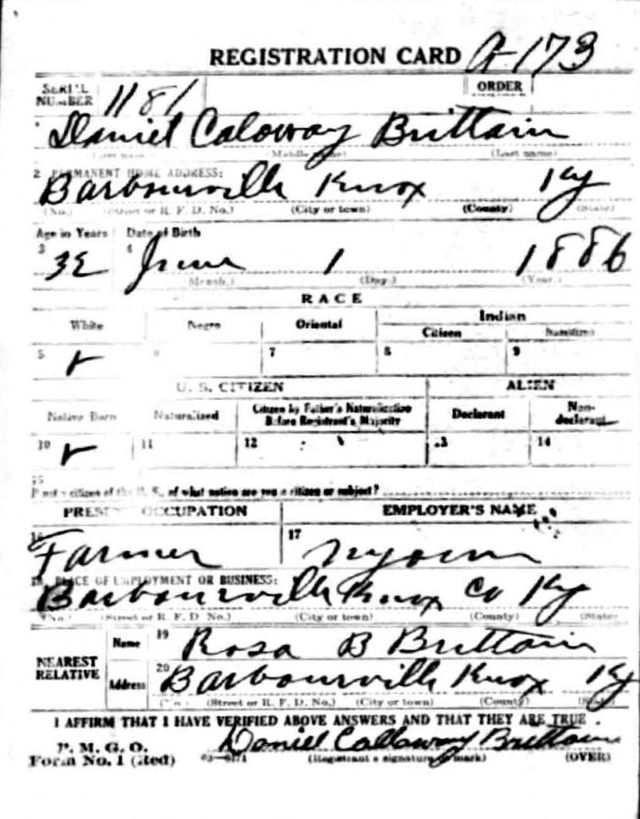 REGISTRATION CARD A-173
SERIAL NUMBER 1181 ORDER
Daniel Caloway Brittain
(Middle name) (Last name)
2 PERMANENT HOME ADDRESS:
Barbourville Knox Ky
(No.) (Street or R. F. D. No.) (City or town) (County) (State)
Age in Years Date of Birth
3 32 4 June 1 1886
(Month.) (Day.) (Year.)
RACE
White Negro Oriental Indian
Citizen
5 7 8 9
U. S. CITIZEN ALIEN
Native Born Naturalized Citizen by Father's Naturalization Before Registrant's Majority Declarant Non-declarant
10 11 12 13 14
15
If not a citizen of the U. S., of what nation are you a citizen or subject?
PRESENT OCCUPATION EMPLOYER'S NAME
16 17
Farmer
PLACE OF EMPLOYMENT OR BUSINESS:
Barbourville Knox Co Ky
(No.) (Street or R. F. D. No.) (City or town) (County) (State)
NEAREST RELATIVE
Name 19 Rosa B Brittain
Address 20 Barbourville Knox Ky
(No.) (Street or R. F. D. No.) (City or town) (County) (State)
I AFFIRM THAT I HAVE VERIFIED ABOVE ANSWERS AND THAT THEY ARE TRUE.
P. M. G. O.
Form No. 1 (Red) Daniel Callaway Brittain
(Registrant's signature or mark) (OVER)